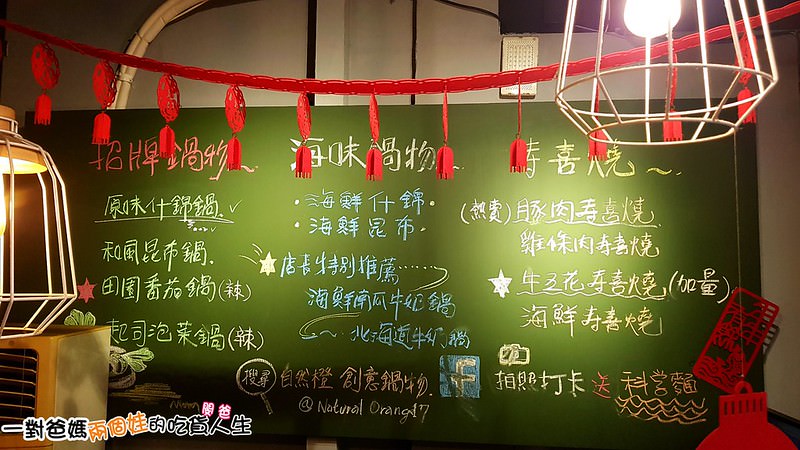 招牌鍋物
原味什錦鍋
和風昆布鍋
田園番茄鍋(辣)
起司泡菜鍋(辣)
海味鍋物
·海鮮什錦·
·海鮮昆布·
店長特別推薦
海鮮南瓜牛奶鍋
北海道牛奶鍋
壽喜燒
(熱賣)豚肉壽喜燒
雞條肉壽喜燒
牛五花壽喜燒(加量)
海鮮壽喜燒
搜尋 自然橙 創意鍋物
@Natural Orange17
拍照打卡 送 科學麵
一對爸媽兩個娃的吃貨人生